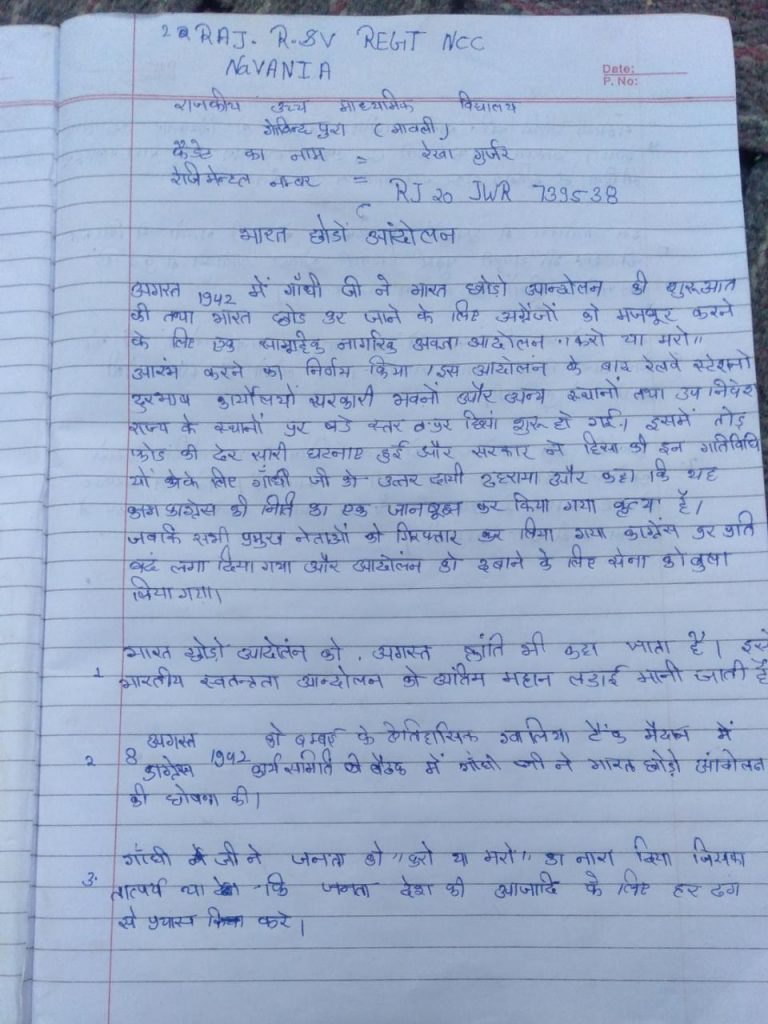 2 RAJ. R.&V REGT NCC
NaVANIA
Date:
P. No:
राजकीय उच्च माध्यमिक विद्यालय
गोविन्दपुरा (मावली)
कैडेट का नाम = रेखा गुर्जर
रेजिमेन्टल नम्बर = RJ 20 JWR 739538
भारत छोडों आंदोलन
अगस्त 1942 में गाँधी जी ने भारत छोडो आन्दोलन की शुरूआत
की तथा भारत छोड कर जाने के लिए अंग्रेंजों को मजबूर करने
के लिए एक सामूहिक नागरिक अवज्ञा आदोलन "करो या मरो"
आरंभ करने का निर्णय किया। इस आदोलंन के बाद रेलवे स्टेशनो
दुरभाष कार्यालयों सरकारी भवनों और अन्य स्थानों तथा उप निवेश
राज्य के स्थानों पर बडे स्तर पर हिसां शुरू हो गई। इसमें तोड़
फोड की ढेर सारी घटनाए हुई और सरकार ने हिसा की इन गतिविधि
यों के लिए गाँधी जी को उत्तर दायी ठहराया और कहा कि यह
काग्रेस की निति का एक जानबूझ कर किया गया कृत्य है।
जबकि सभी प्रमुख नेताओं को गिरफ्तार कर लिया गया काग्रेंस पर प्रति
बंद लगा दिया गया और आदोलंन को दबाने के लिए सेना को बुला
लिया गया।
1 भारत छोडो आदोलंन को अगस्त क्रांति भी कहा जाता है। इसे
भारतीय स्वतन्त्रता आन्दोलन की अंतिम महान लडाई मानी जाती है
2 8 अगस्त 1942 को बम्बई के ऐतिहासिक ग्वालिया टैंक मैदान में
काग्रेस कार्य समिति की बैठक में गांधी जी ने भारत छोड़ो आंदोलन
की घोषना की।
3. गाँधी जी ने जनता को "करो या मरो" का नारा दिया जिसका
तात्पर्य था कि जनता देश की आजादि के लिए हर ढंग
से प्रयास करे।